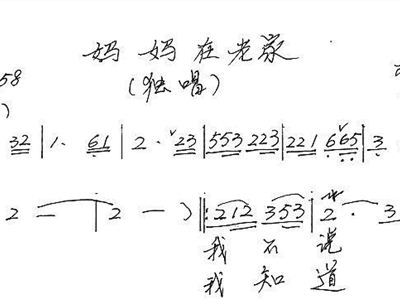 妈妈在老家
58
(独唱)
)
32 | 1· 61 | 2· 23 | 553 223 | 221 665 | 3
2 — | 2 — ) ‖: 212 353 | 2· 3
我 不 说
我 知 道